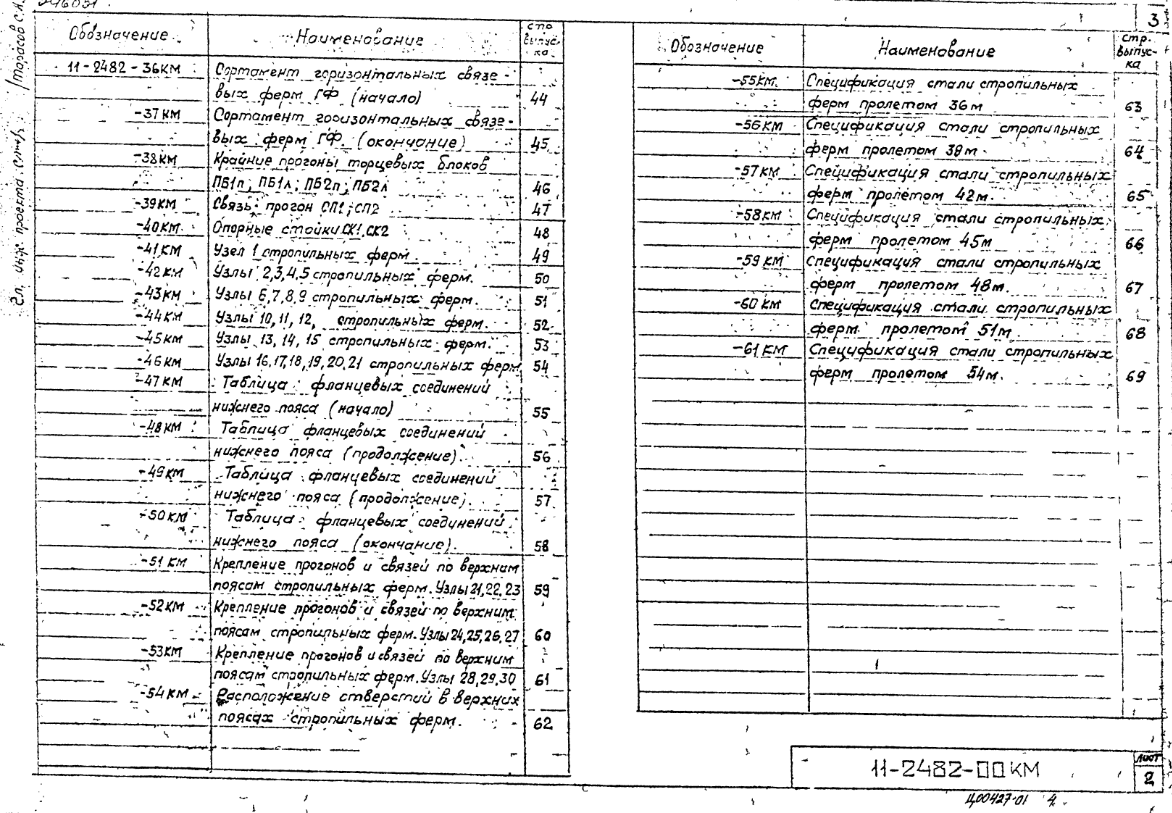 3
Обозначение Наименование стр. выпуска
11-2482-36КМ Сортамент горизонтальных связе-
вых ферм ГФ (начало) 44
-37КМ Сортамент горизонтальных связе-
вых ферм ГФ (окончание) 45
-38КМ Крайние прогоны торцевых блоков
ПБ1п; ПБ1л; ПБ2п; ПБ2л 46
-39КМ Связь-прогон СП1; СП2 47
-40КМ Опорные стойки СК1, СК2 48
-41КМ Узел 1 стропильных ферм 49
-42КМ Узлы 2,3,4,5 стропильных ферм. 50
-43КМ Узлы 6,7,8,9 стропильных ферм. 51
-44КМ Узлы 10, 11, 12, стропильных ферм. 52
-45КМ Узлы 13, 14, 15 стропильных ферм. 53
-46КМ Узлы 16,17,18,19,20,21 стропильных ферм 54
-47КМ Таблица фланцевых соединений
нижнего пояса (начало) 55
-48КМ Таблица фланцевых соединений
нижнего пояса (продолжение) 56
-49КМ Таблица фланцевых соединений
нижнего пояса (продолжение) 57
-50КМ Таблица фланцевых соединений
нижнего пояса (окончание). 58
-51КМ Крепление прогонов и связей по верхним
поясам стропильных ферм. Узлы 21,22,23 59
-52КМ Крепление прогонов и связей по верхним
поясам стропильных ферм. Узлы 24,25,26,27 60
-53КМ Крепление прогонов и связей по верхним
поясам стропильных ферм. Узлы 28,29,30 61
-54КМ Расположение отверстий в верхних
поясах стропильных ферм. 62
Обозначение Наименование Стр. выпуска
-55КМ. Спецификация стали стропильных
ферм пролетом 36м 63
-56КМ Спецификация стали стропильных
ферм пролетом 39м. 64
-57КМ Спецификация стали стропильных
ферм пролетом 42м. 65
-58КМ Спецификация стали стропильных
ферм пролетом 45м 66
-59КМ Спецификация стали стропильных
ферм пролетом 48м. 67
-60КМ Спецификация стали стропильных
ферм пролетом 51м 68
-61КМ Спецификация стали стропильных
ферм пролетом 54м. 69
11-2482-00КМ
лист
2
Ц00427-01 4
Гл. инж. проекта Тарасов С.А.